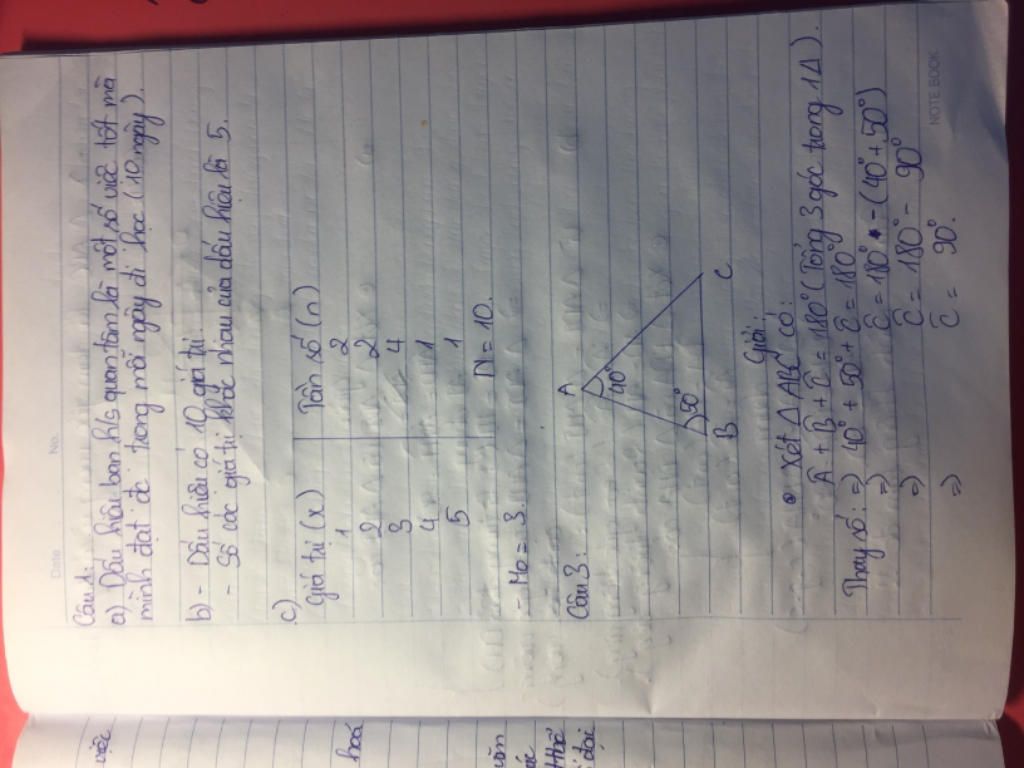 Date No.
Câu 1:
a) Dấu hiệu bạn h/s quan tâm là một số việc tốt mà
mình đạt đc trong mỗi ngày đi học (10 ngày).
b) - Dấu hiệu có 10 giá trị.
- Số các giá trị khác nhau của dấu hiệu là 5.
c)
Giá trị (x) Tần số (n)
1 2
2 2
3 4
4 1
5 1
N = 10.
- Mo = 3.
Câu 3:
A
40°
50°
B C
Giải:
• Xét Δ ABC có:
Â + B̂ + Ĉ = 180° (Tổng 3 góc trong 1 Δ).
Thay số: => 40° + 50° + Ĉ = 180°
=> Ĉ = 180° - (40° + 50°)
=> Ĉ = 180° - 90°
=> Ĉ = 90°.
NOTE BOOK
việc
hoá
văn
đôi